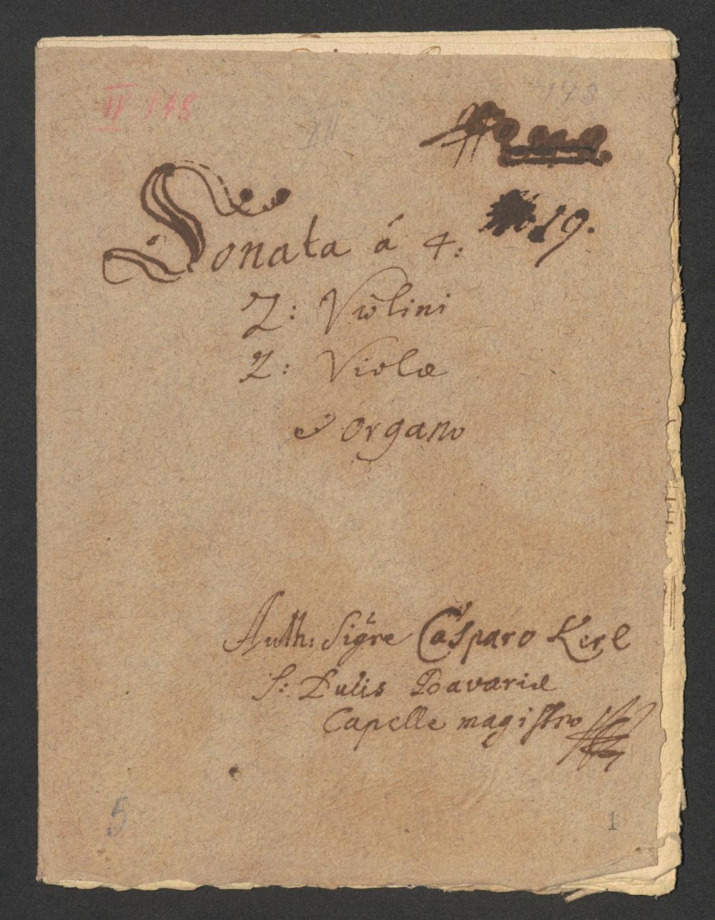 II 148
148
XII
Sonata á 4: 19.
2: Violini
2: Violæ
è Organo
Auth: Sigre Casparo Kerl
S: Dulis Bavariæ
Capellæ magistro
5
1